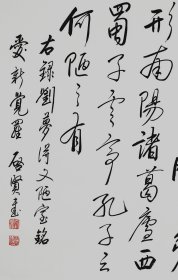 形南陽諸葛廬西
蜀子雲亭孔子云
何陋之有
右錄劉夢得文陋室銘
愛新覺羅 啟賢書